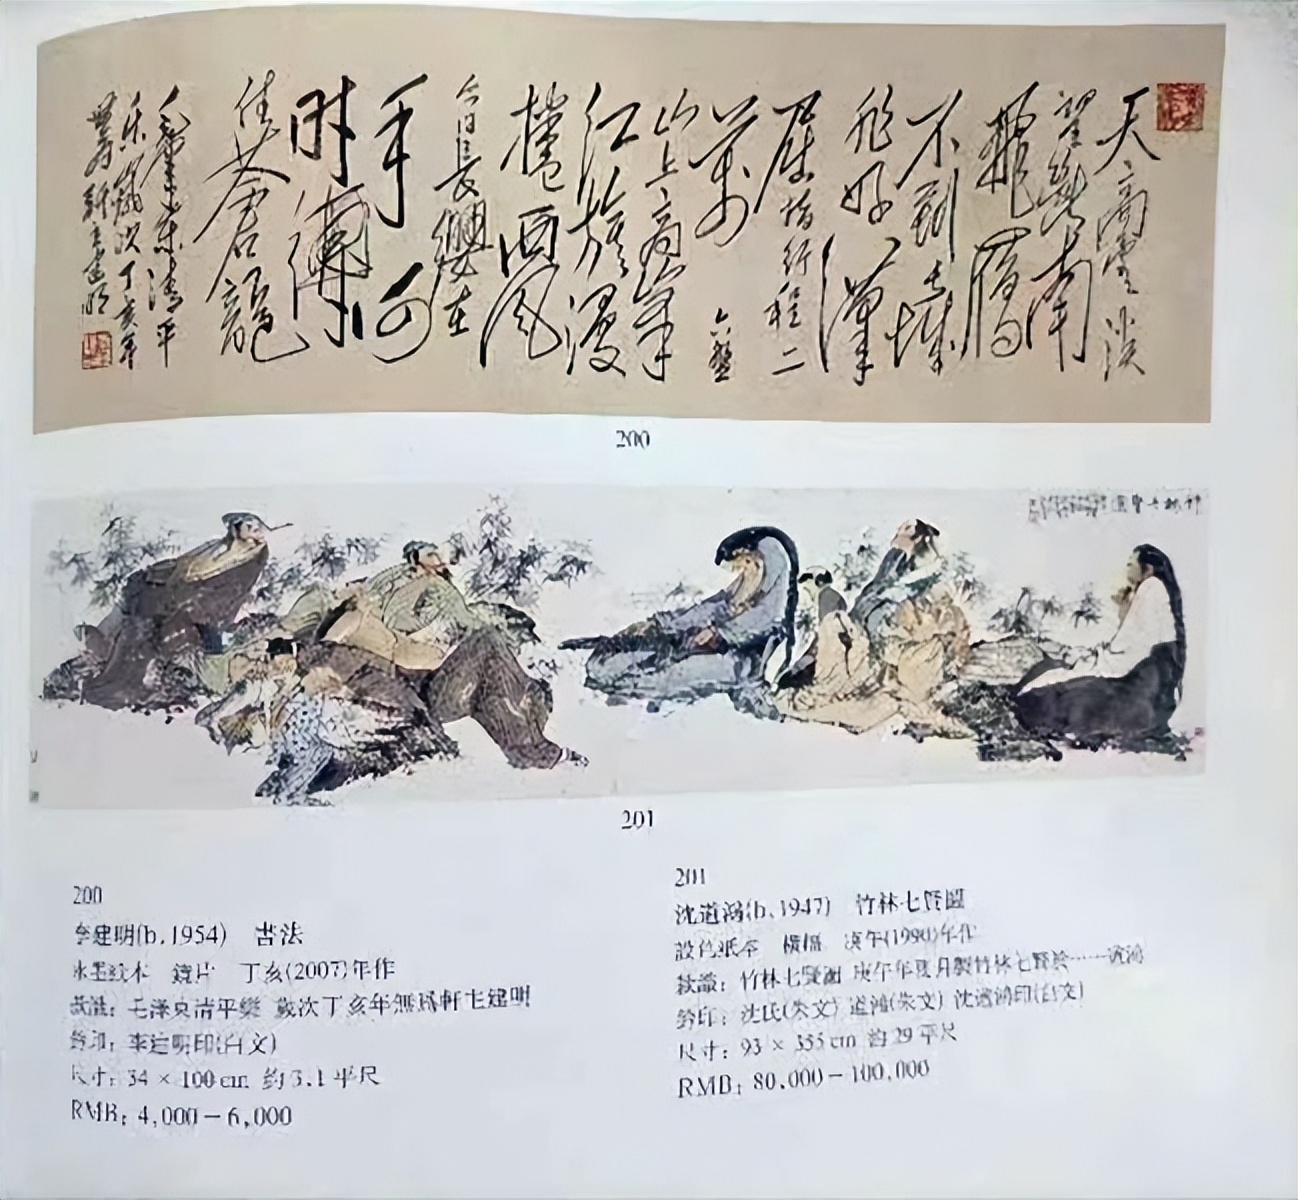 天高雲淡
望斷南
飛雁
不到長城
非好漢
屈指行程二
萬 六盤
山上高峰
紅旗漫
捲西風
今日長纓在
手何
時縛
住蒼龍
毛澤東清平
樂歲次丁亥年
無為軒主建明
200
竹林七賢圖
201
200
李建明(b.1954) 书法
水墨纸本 镜片 丁亥(2007)年作
款識：毛澤東清平樂 歲次丁亥年無為軒主建明
鈐印：李建明印(白文)
尺寸：34 × 100 cm 約 3.1 平尺
RMB：4,000－6,000
201
沈道鴻(b.1947) 竹林七賢圖
設色紙本 橫幅 庚午(1990)年作
款識：竹林七賢圖 庚午年夏月製竹林七賢於……道鴻
鈐印：沈氏(朱文) 道鴻(朱文) 沈道鴻印(白文)
尺寸：93 × 355 cm 約 29 平尺
RMB：80,000－100,000